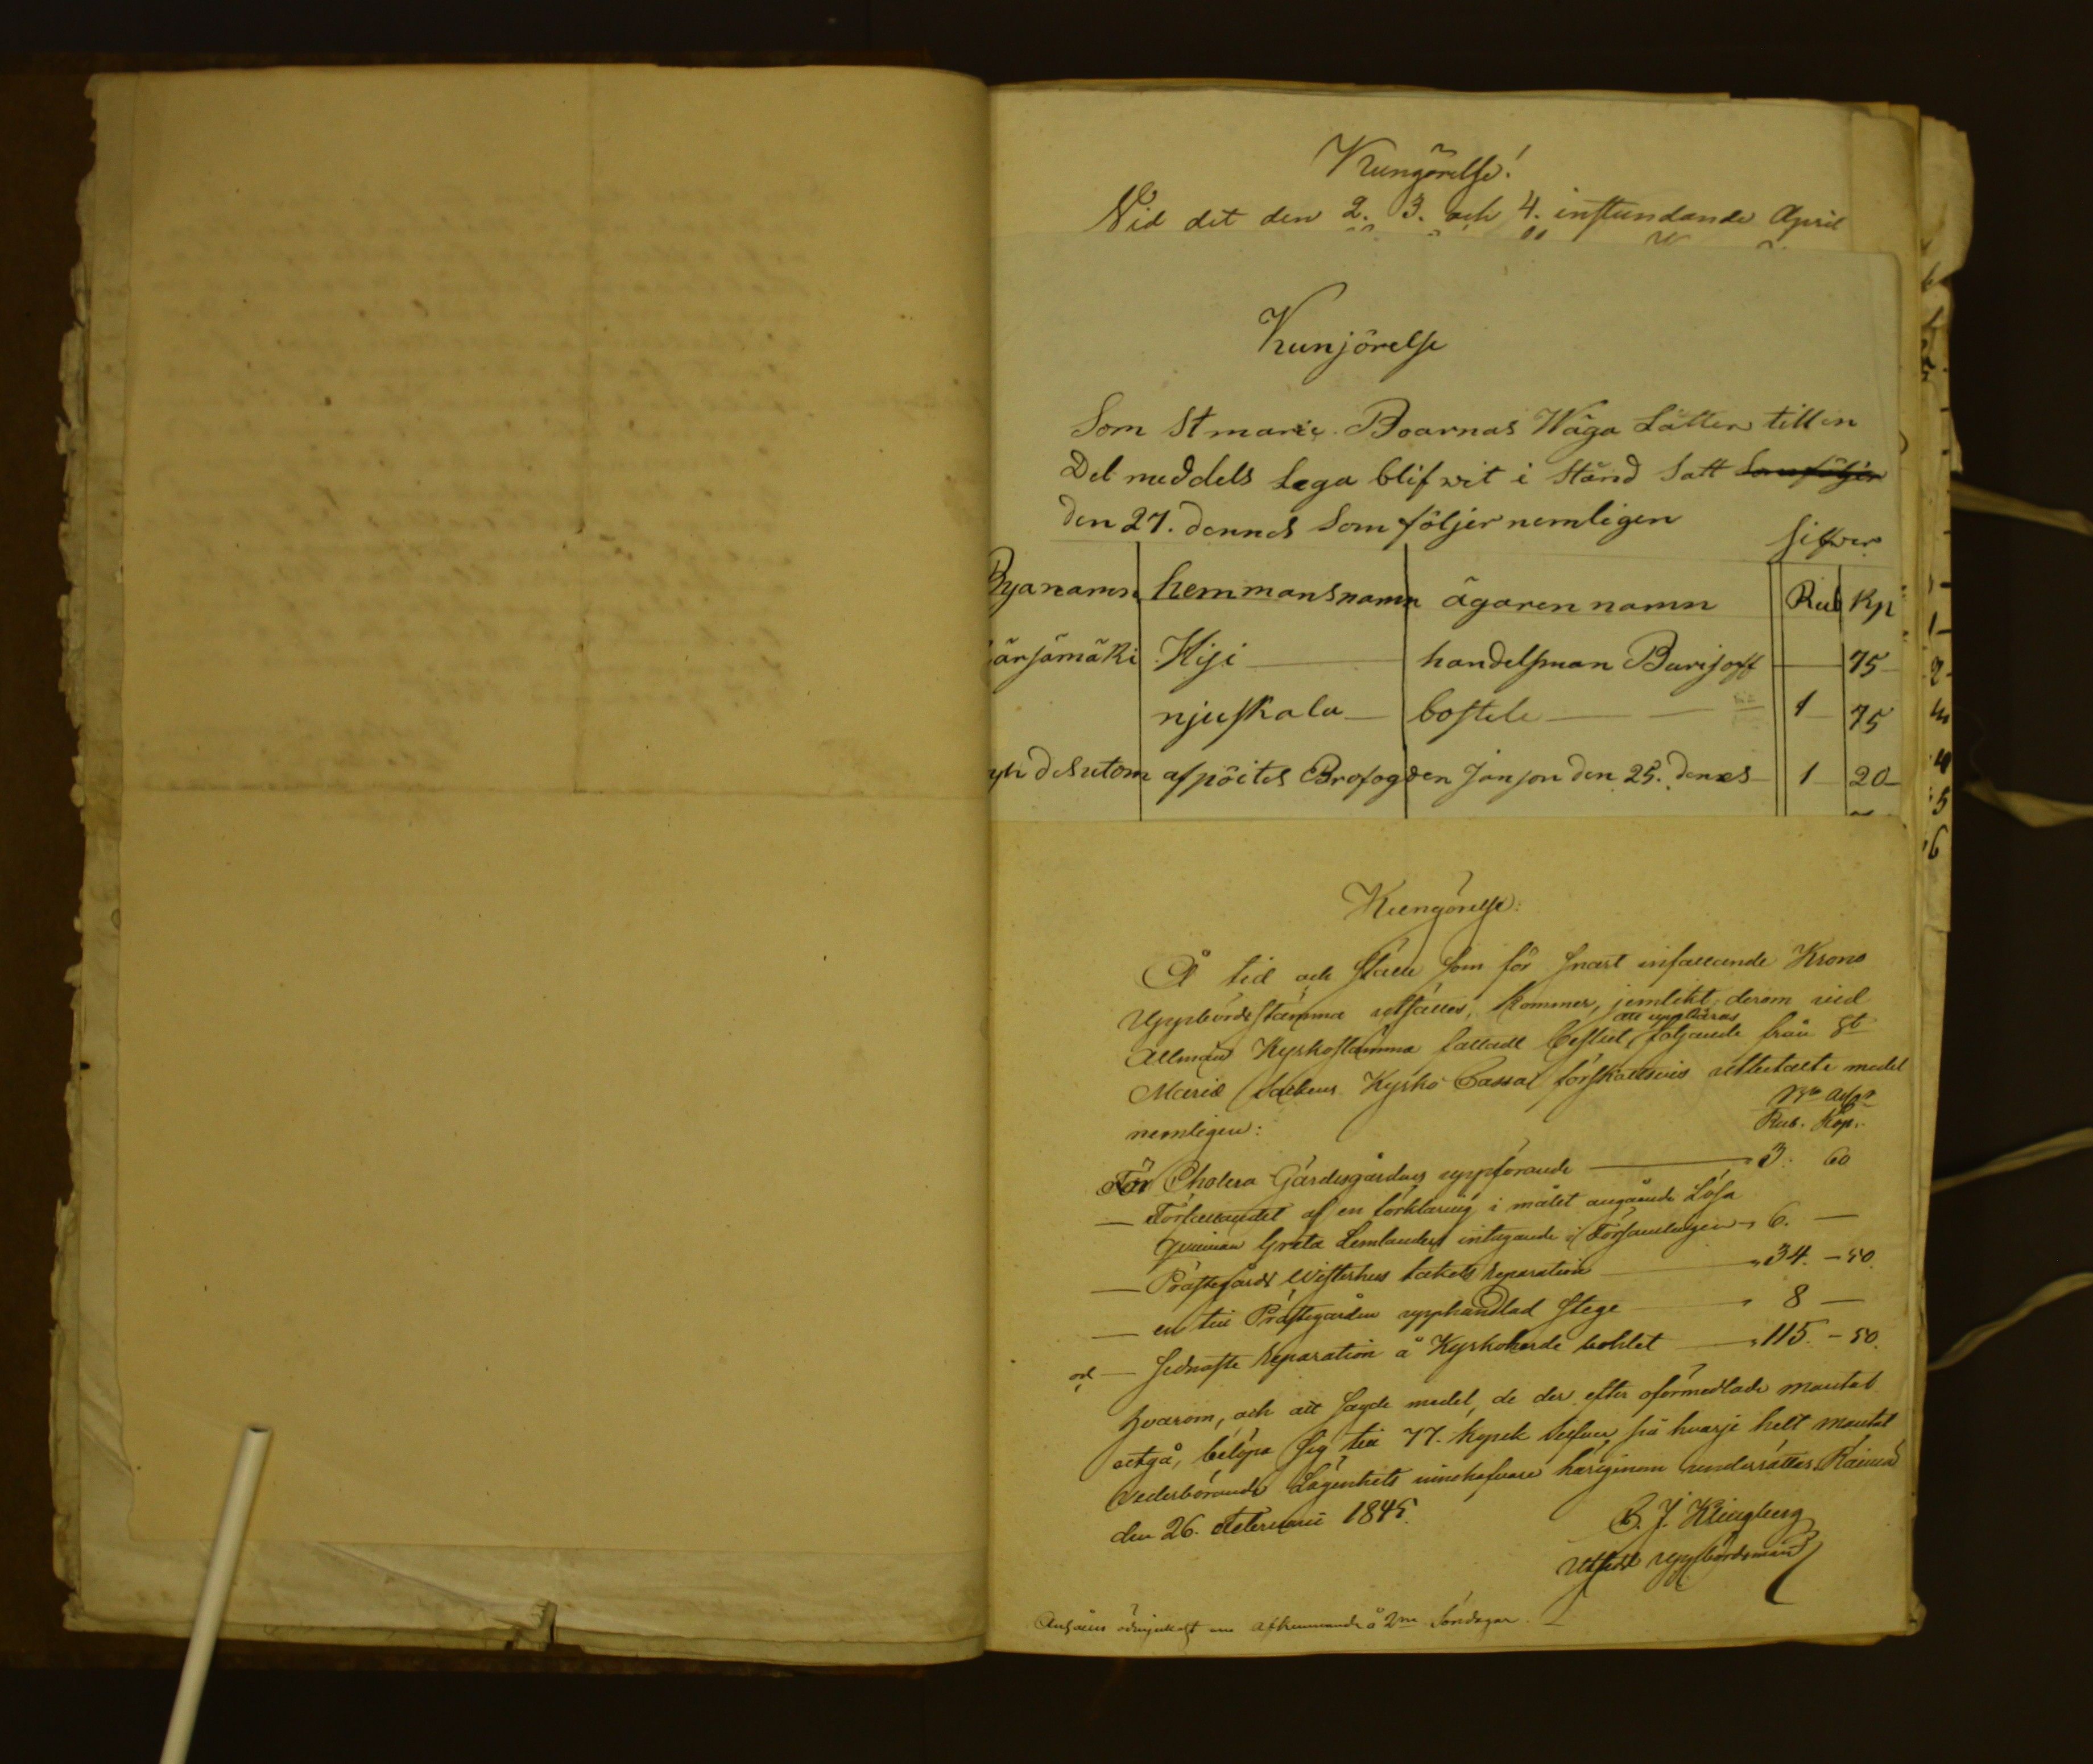 Kungörelse!
Vid det den 2. 3. och 4. instundande April
Kunjörelse
Som St marie Boarnas Wäga Låtter till en
Del meddels Lega blifwit i Stånd Satt Som följer
den 27. dennes Som följer nemligen
Silfwer
Byanamn hemmansnamn ägaren namn Rub Kp
ärjämäki Hiji handelsman Burisoff 75
njuskala bostele 1 75
desutom Brofogden Janson den 25. denes 1 20
Kungörelse:
Å tid och ställe som för snart infallande Krono
Uppbördsstämma utsättes, kommer, jemlikt derom vid
att uppbäras
Allmän Kyrkostämma fattadt beslut, följande från St
Mariæ Sockens Kyrko Cassa förskottsvis utbetalte medel
nemligen:
Rub. Kop.
För Cholera Gärdesgårdens uppförande 3. 60
— Författandet af en förklaring i målet angående Lösa
qvinnan Greta Lemlanders intagande i Församlingen 6. —
— Prästegårds Visthus takets reparation 34. — 50.
— en till Prästegården upphandlad Stege 8 —
och — sednaste reparation å Kyrkoherde bohlet 115. — 50.
hvarom, och att sagde medel, de der efter oförmedlade mantal
utgå, belöpa sig till 77. kopek Silfver på hvarje helt mantal
vederbörande Lägenhets innehafvare härigenom underrättas. Räntämäki
den 26. Februarii 1845.
C. J. Klingberg
Utsedd Uppbördsman
Anhålles ödmjukast om afkunnande å 2ne Söndagar.